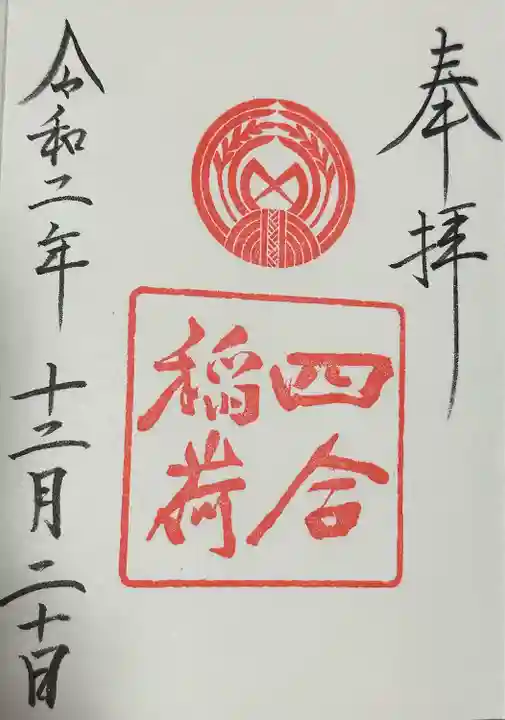 奉拝
四合
稲荷
令和二年 十二月 二十日